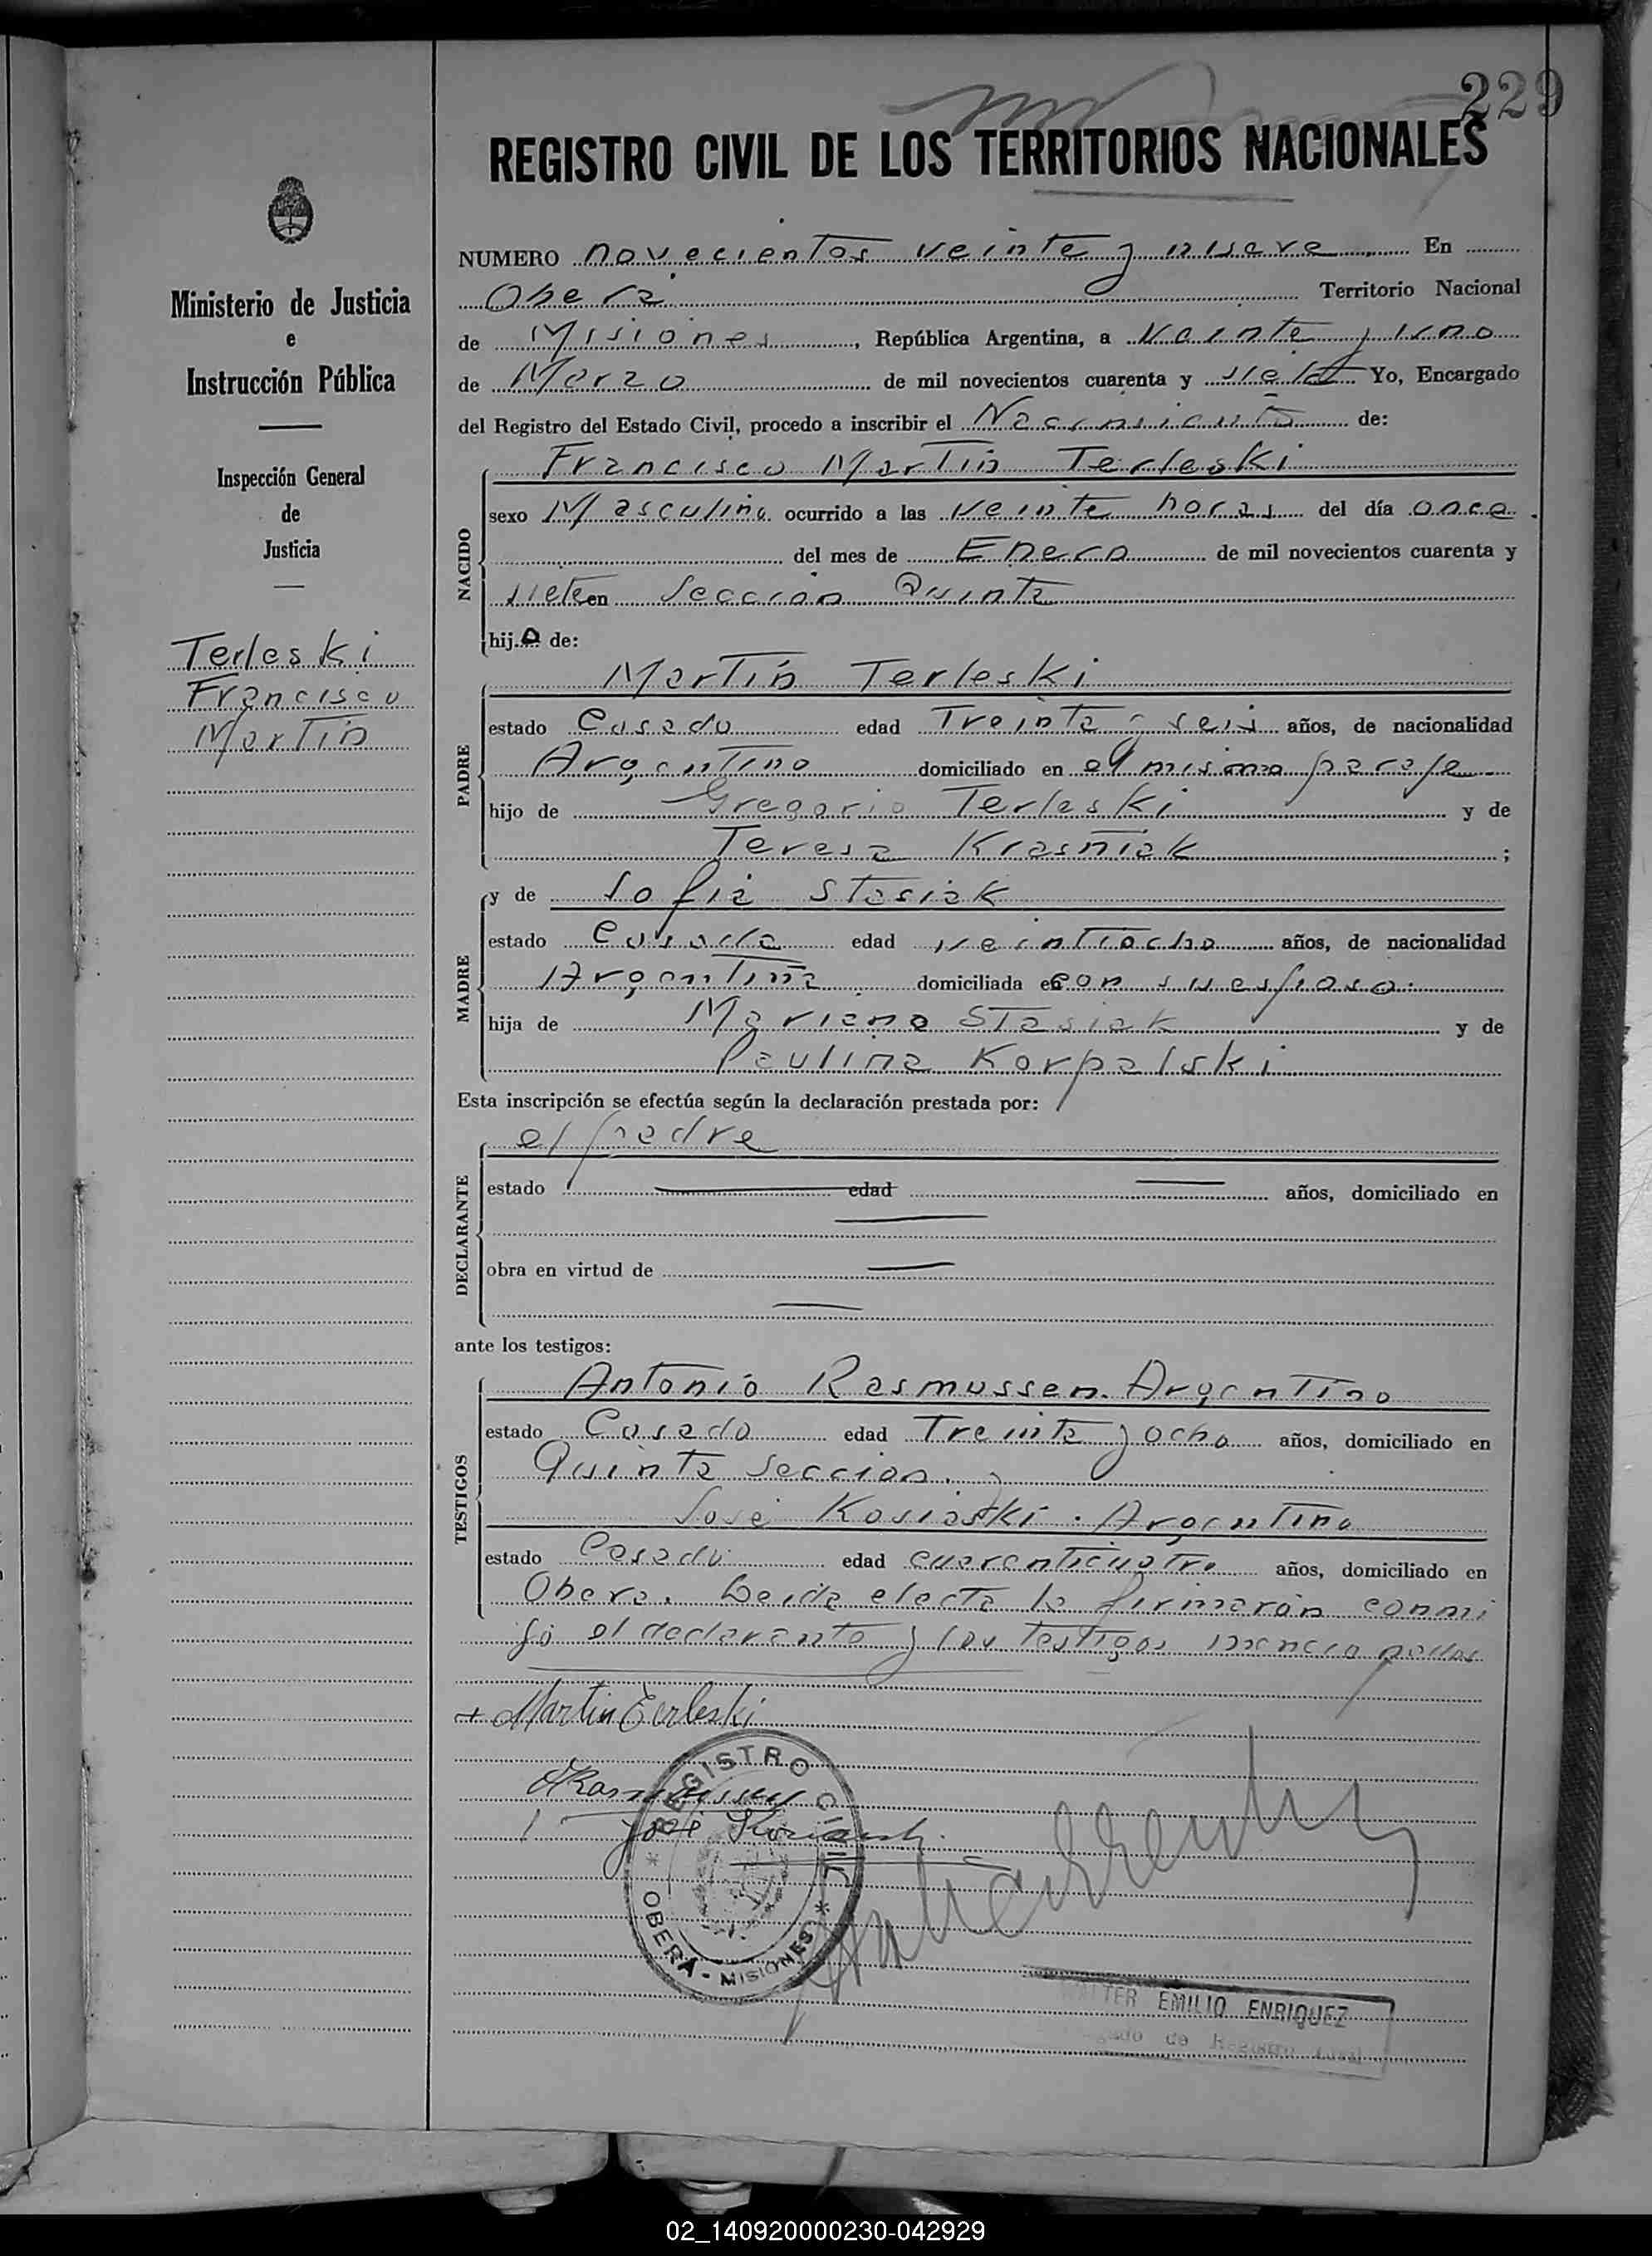 229
REGISTRO CIVIL DE LOS TERRITORIOS NACIONALES
Ministerio de Justicia
e
Instrucción Pública
Inspección General
de
Justicia
Terleski
Francisco
Martín
NUMERO novecientos veinte y nueve En
Oberá Territorio Nacional
de Misiones, República Argentina, a Veinte y uno
de Marzo de mil novecientos cuarenta y siete Yo, Encargado
del Registro del Estado Civil, procedo a inscribir el Nacimiento de:
NACIDO
Francisco Martín Terleski
sexo Masculino ocurrido a las veinte horas del día once
del mes de Enero de mil novecientos cuarenta y
siete en Sección Quinta
hijo de:
PADRE
Martín Terleski
estado Casado edad Treinta y seis años, de nacionalidad
Argentino domiciliado en el mismo paraje
hijo de Gregorio Terleski y de
Teresa Krasniak ;
MADRE
y de Sofia Stasiak
estado Casada edad veintiocho años, de nacionalidad
Argentina domiciliada en con su esposo.
hija de Mariano Stasiak y de
Paulina Korpalski
Esta inscripción se efectúa según la declaración prestada por:
DECLARANTE
el padre
estado edad años, domiciliado en
obra en virtud de
ante los testigos:
TESTIGOS
Antonio Rasmussen. Argentino
estado Casado edad Treinta y ocho años, domiciliado en
Quinta Sección. y
José Kosiaski. Argentino
estado Casado edad cuarenticuatro años, domiciliado en
Oberá. Leida el acta la firmarán conmi
go el declarante y los testigos mencionados
Martin Terleski
ARasmussen
José
REGISTRO CIVIL
* OBERÁ - MISIONES *
WALTER EMILIO ENRIQUEZ
Encargado de Registro Civil
02_140920000230-042929